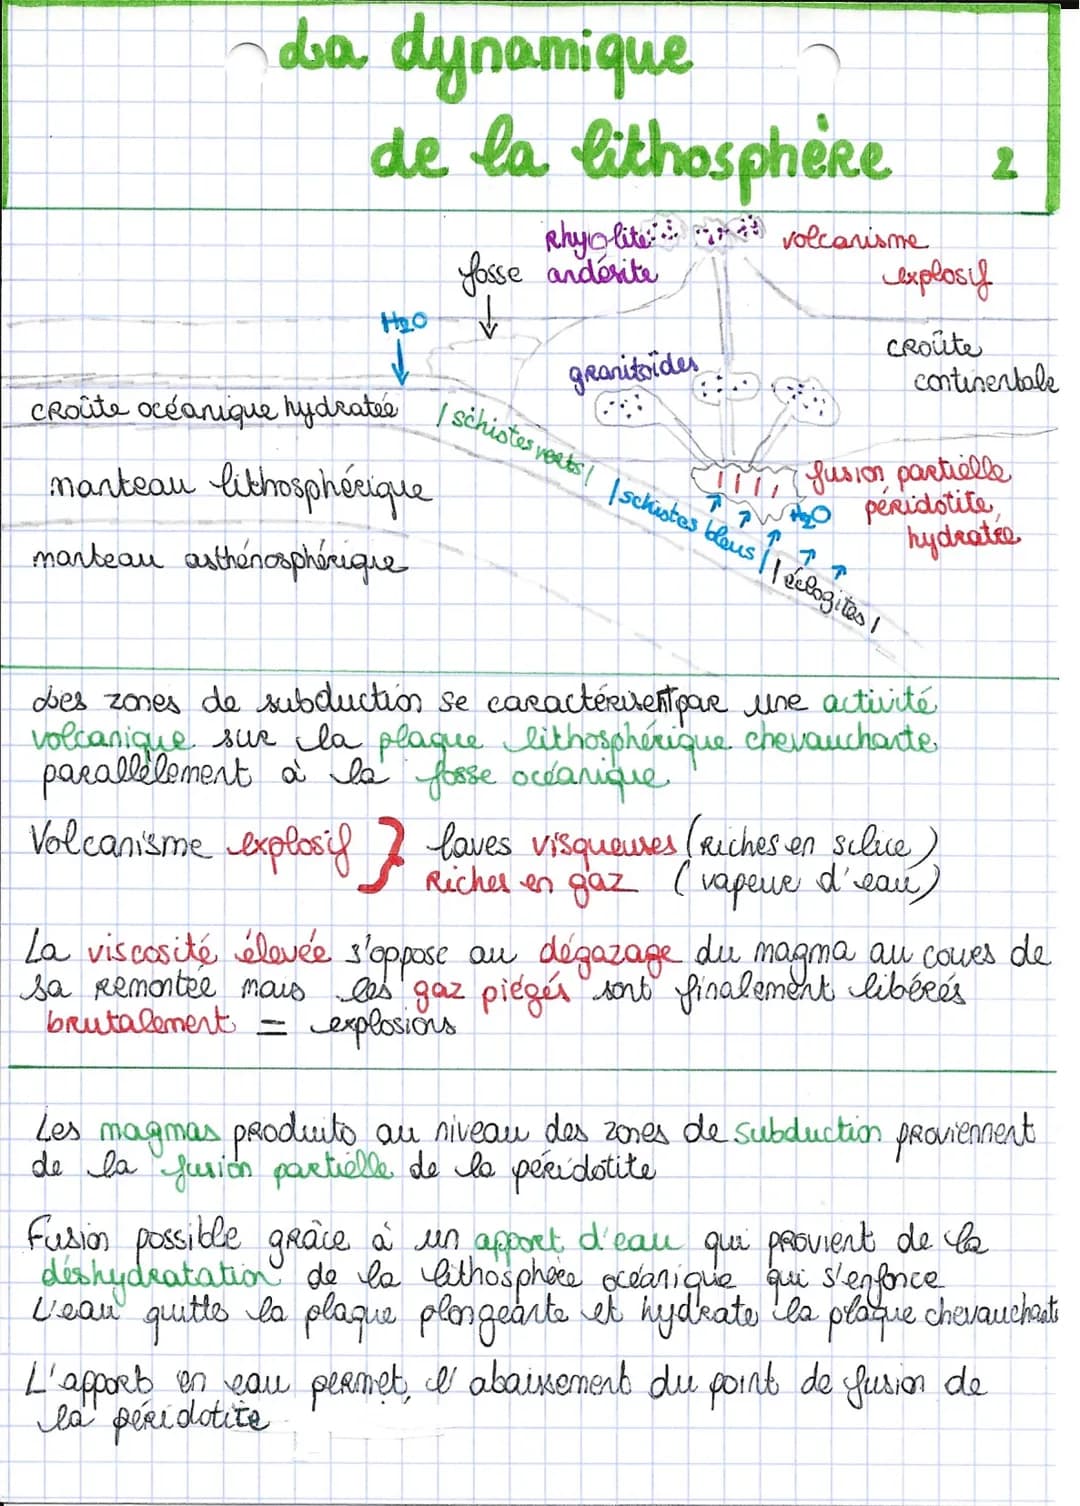 La dynamique
de la lithosphère 2
Rhyolite volcanisme
fosse andésite explosif
H2O
croûte
granitoïdes continentale
croûte océanique hydratée /schistes verts/
fusion partielle
manteau lithosphérique /schistes bleus/ H2O péridotite
hydratée
manteau asthénosphérique /éclogites/
Les zones de subduction se caractérisent par une activité
volcanique sur la plaque lithosphérique chevauchante
parallèlement à la fosse océanique
Volcanisme explosif } laves visqueuses (riches en silice)
Riches en gaz (vapeur d'eau)
La viscosité élevée s'oppose au dégazage du magma au cours de
sa remontée mais les gaz piégés sont finalement libérés
brutalement = explosions
Les magmas produits au niveau des zones de subduction proviennent
de la fusion partielle de la péridotite
Fusion possible grâce à un apport d'eau qui provient de la
déshydratation de la lithosphère océanique qui s'enfonce
L'eau quitte la plaque plongeante et hydrate la plaque chevauchante
L'apport en eau permet l'abaissement du point de fusion de
la péridotite